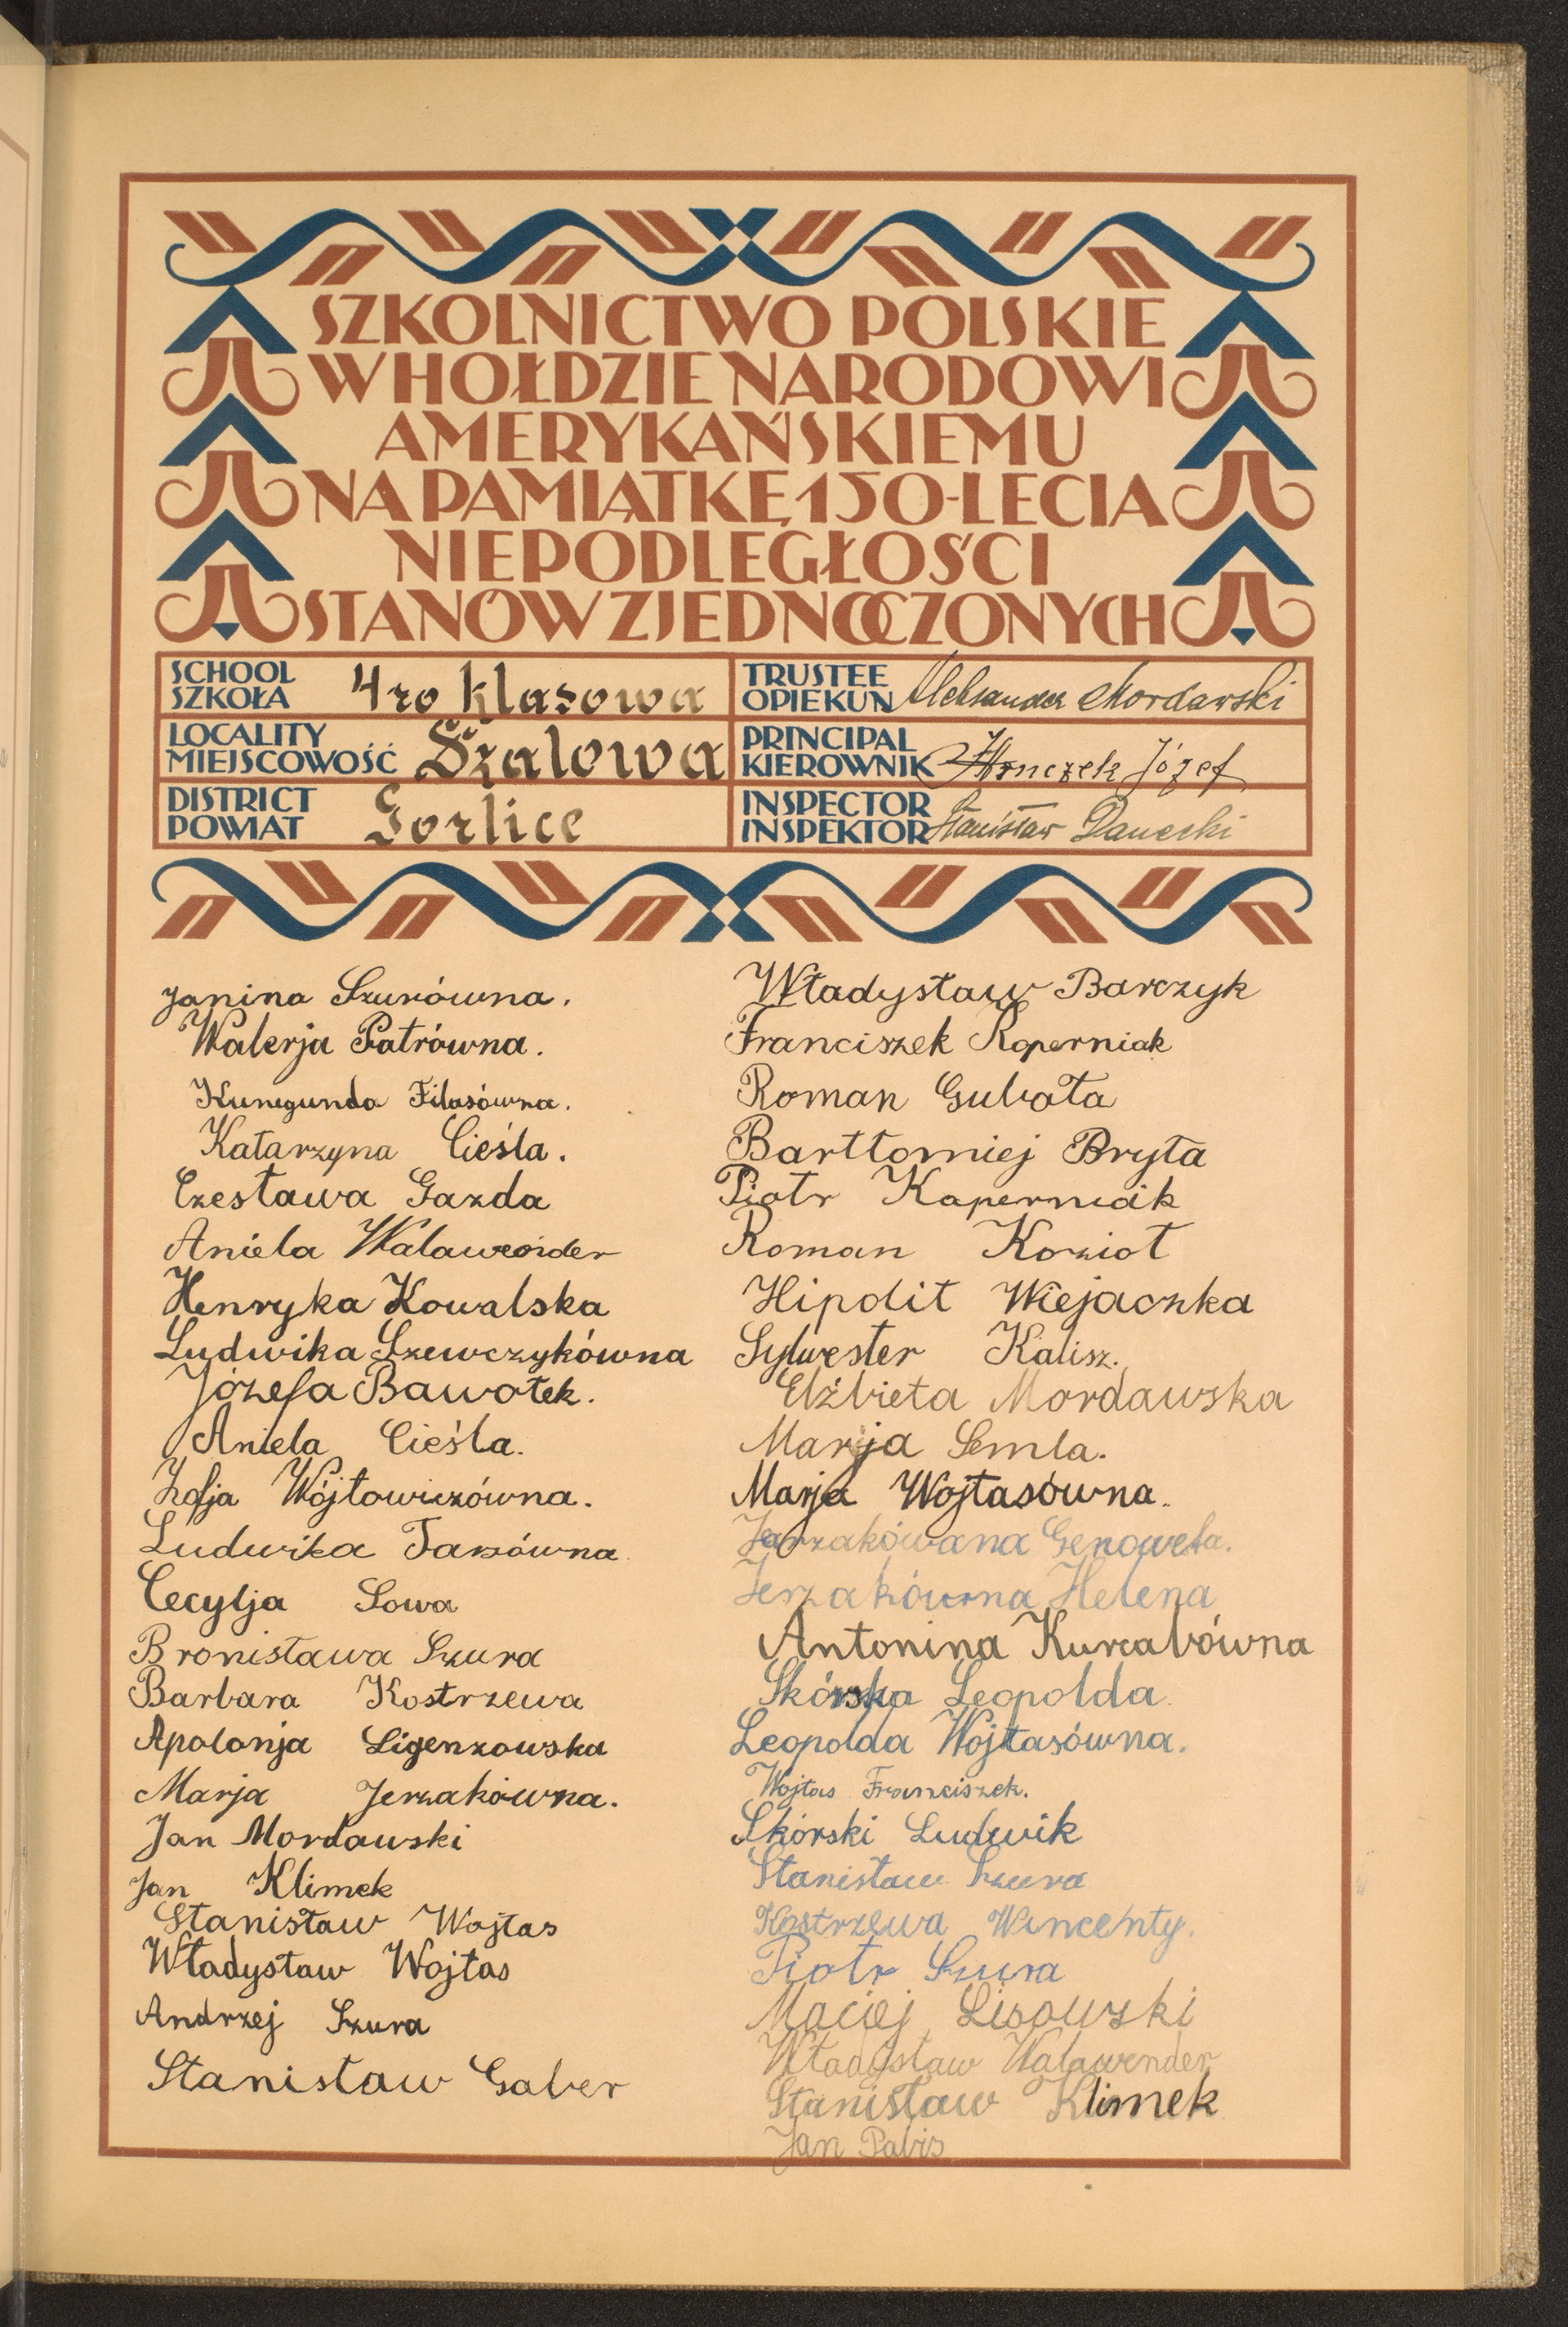 SZKOLNICTWO POLSKIE
W HOŁDZIE NARODOWI
AMERYKAŃSKIEMU
NA PAMIĄTKĘ 150-LECIA
NIEPODLEGŁOŚCI
STANÓW ZJEDNOCZONYCH
SCHOOL
SZKOŁA
4ro klasowa
LOCALITY
MIEJSCOWOŚĆ
Szalowa
DISTRICT
POWIAT
Gorlice
TRUSTEE
OPIEKUN
Aleksander Mordawski
PRINCIPAL
KIEROWNIK
Józef
INSPECTOR
INSPEKTOR
Stanisław Danecki
Janina Szurówna.
Walerja Patrówna.
Kunegunda Filasówna.
Katarzyna Cieśla.
Czesława Gazda
Aniela Walawender
Henryka Kowalska
Ludwika Szewczykówna
Józefa Bawołek.
Aniela Cieśla.
Zofja Wójtowiczówna.
Ludwika
Cecylja Sowa
Bronisława Szura
Barbara Kostrzewa
Apolonja Ligenzowska
Marja Jerzakówna.
Jan Mordawski
Jan Klimek
Stanisław Wojtas
Władysław Wojtas
Andrzej Szura
Stanisław Gaber
Władysław Barczyk
Franciszek Koperniak
Roman Gubała
Barttomiej Bryła
Piotr Koperniak
Roman Kozioł
Hipolit Wiejaczka
Sylwester Kalisz.
Elżbieta Mordawska
Marja Semla.
Marja Wojtasówna.
Genowefa.
Helena
Antonina
Skórska Leopolda
Leopolda Wojtasówna.
Wojtas Franciszek.
Skórski Ludwik
Stanisław Szura
Kostrzewa Wincenty.
Piotr Szura
Maciej Lisowski
Władysław Walawender
Stanisław Klimek
Jan Pabis